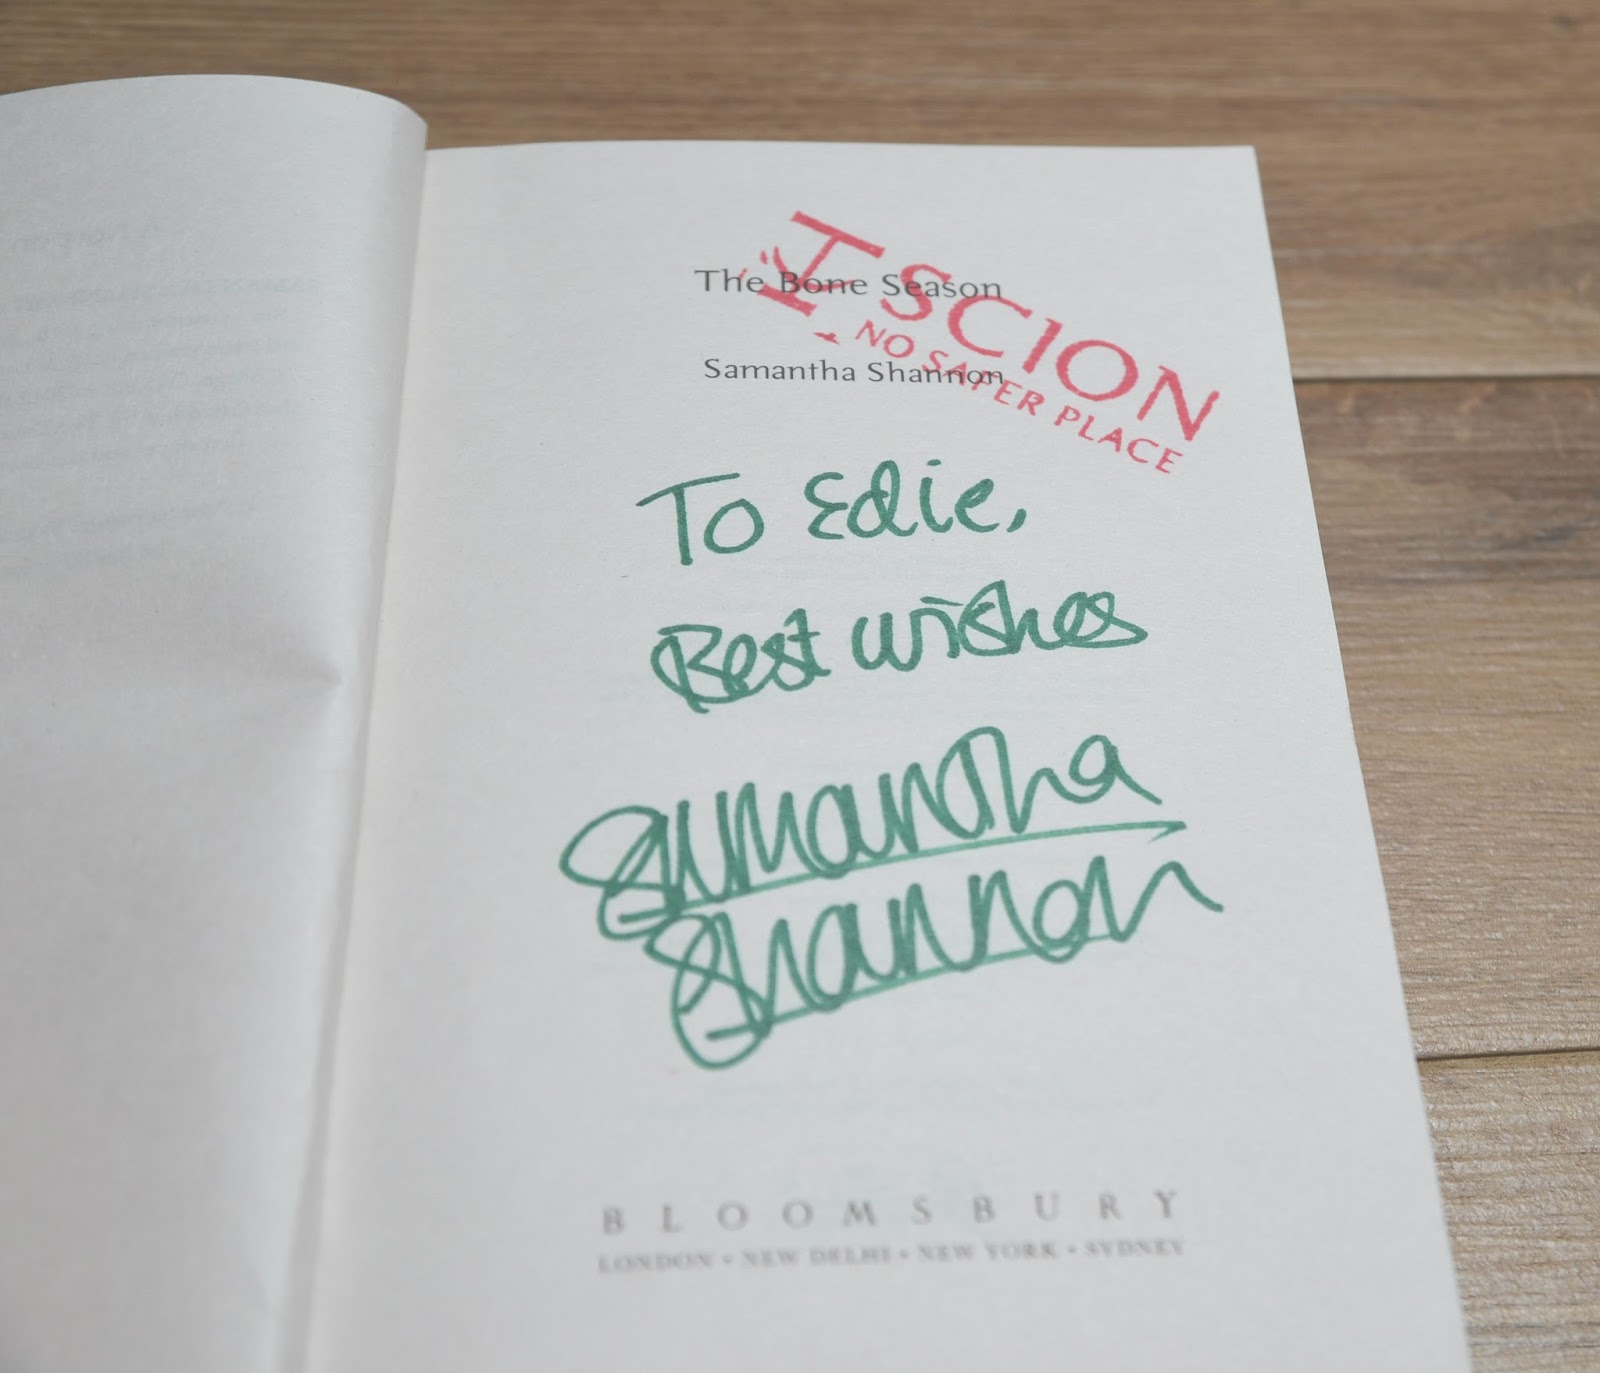 The Bone Season
SCION
NO SAFER PLACE
Samantha Shannon
To Edie,
Best wishes
Samantha
Shannon
BLOOMSBURY
LONDON • NEW DELHI • NEW YORK • SYDNEY